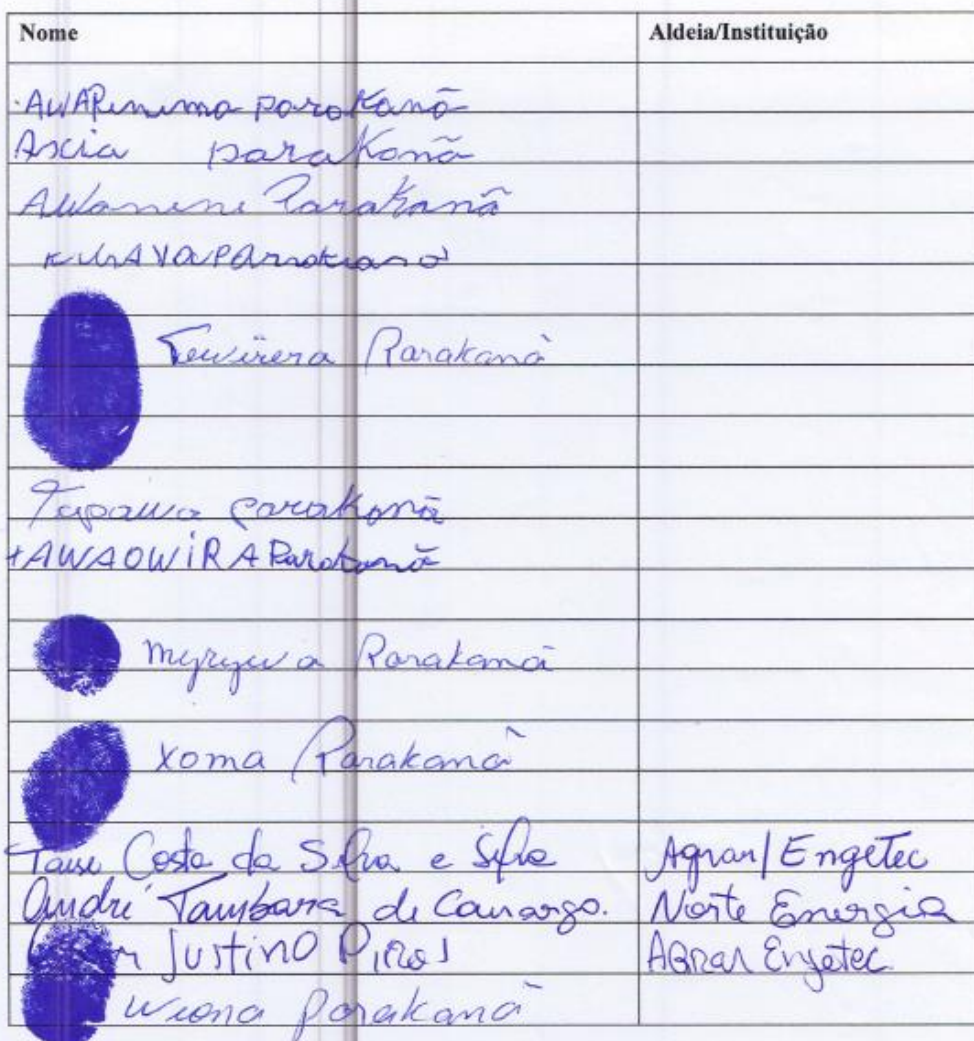 Nome Aldeia/Instituição
AWARenima parakanã
Ascia parakonã
AWanene Parakanã
Tewirera Parakanã
Tapawa parakonã
+AWAOWiRA Parakanã
Myrywa Parakanã
Xoma Parakanã
Taise Costa da Silva e Silva Agrar/Engetec
André Tambara de Camargo. Norte Energia
Justino Pires AGRAR Engetec
Wiona Parakanã